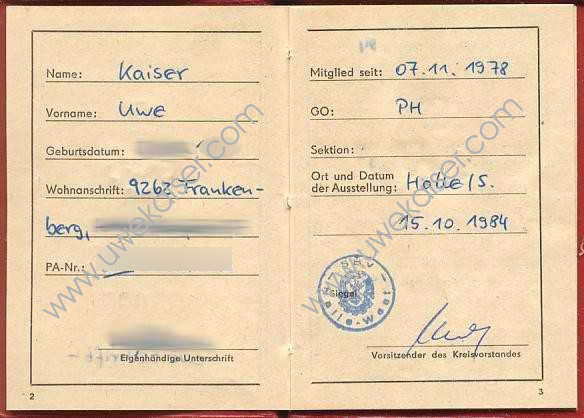 Name: Kaiser
Vorname: Uwe
Geburtsdatum:
Wohnanschrift: 9262 Franken-
berg,
PA-Nr.:
Eigenhändige Unterschrift
2
Mitglied seit: 07.11.1978
GO: PH
Sektion:
Ort und Datum
der Ausstellung: Halle/S.
15.10.1984
Siegel
Halle-West
Vorsitzender des Kreisvorstandes
3
www.uwekaiser.com
www.uwekaiser.com